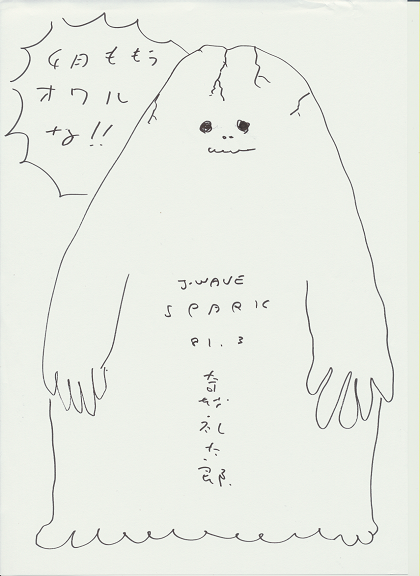 4月ももう
オワル
な!!
J-WAVE
SPARK
81.3
奇妙礼太郎.